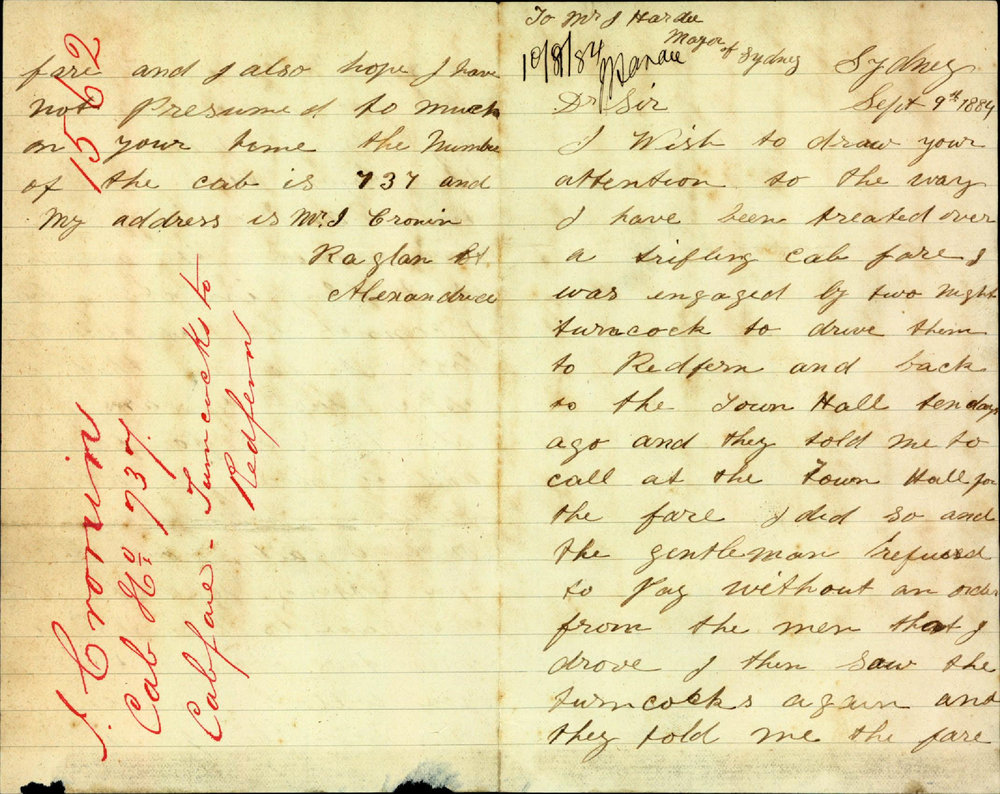 To Mr J Hardie
Mayor of Sydney
10/9/84
Sydney
Sept 9th 1884
Dr Sir
I Wish to draw your
attention to the way
I have been treated over
a trifling cab fare I
was engaged by two night
turncock to drive them
to Redfern and back
to the Town Hall ten days
ago and they told me to
call at the Town Hall for
the fare I did so and
the gentleman refused
to Pay without an order
from the men that I
drove I then saw the
turncocks again and
they told me the fare
fare and I also hope I have
not Presumed to much
on your time the Number
of the cab is 737 and
My address is Mr J Cronin
Raglan St
Alexandria
1562
J. Cronin
Cab No 737.
Cabfare - Turncocks to
Redfern